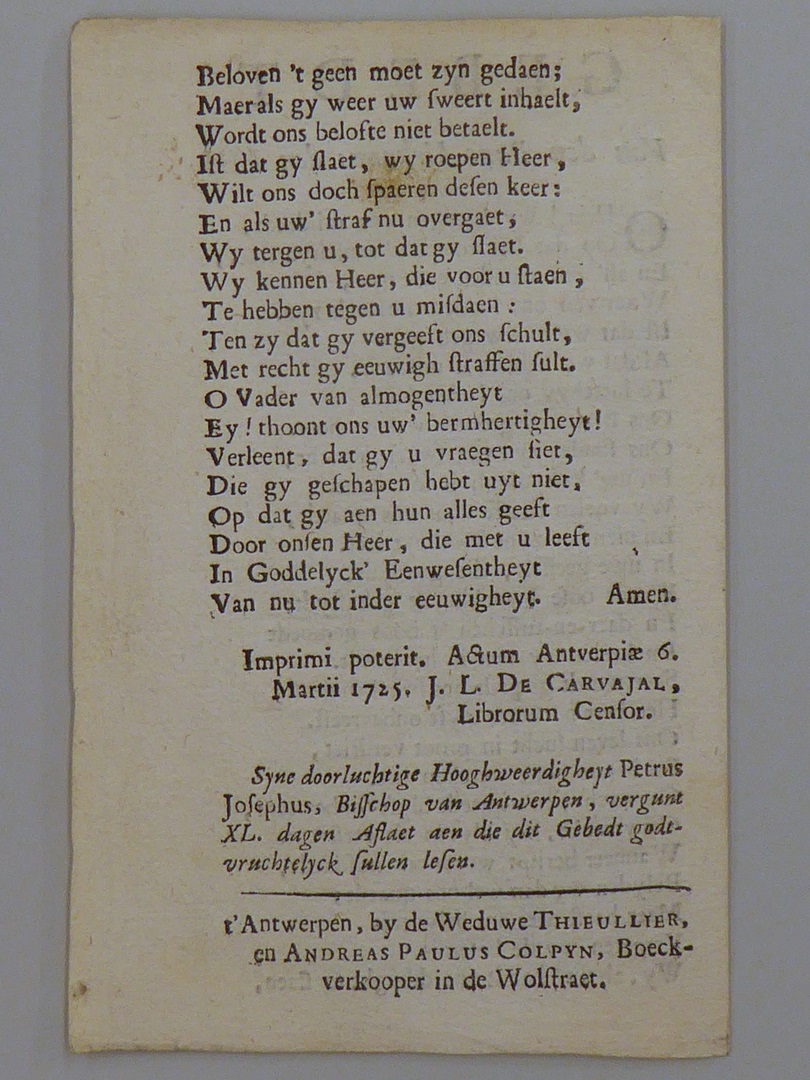 Beloven 't geen moet zyn gedaen;
Maer als gy weer uw ſweert inhaelt,
Wordt ons belofte niet betaelt.
Iſt dat gy ſlaet, wy roepen Heer,
Wilt ons doch ſpaeren deſen keer:
En als uw' ſtraf nu overgaet,
Wy tergen u, tot dat gy ſlaet.
Wy kennen Heer, die voor u ſtaen,
Te hebben tegen u miſdaen:
Ten zy dat gy vergeeft ons ſchult,
Met recht gy eeuwigh ſtraffen ſult.
O Vader van almogentheyt
Ey! thoont ons uw' bermhertigheyt!
Verleent, dat gy u vraegen ſiet,
Die gy geſchapen hebt uyt niet,
Op dat gy aen hun alles geeft
Door onſen Heer, die met u leeft
In Goddelyck' Eenweſentheyt
Van nu tot inder eeuwigheyt. Amen.
Imprimi poterit. Actum Antverpiæ 6.
Martii 1725. J. L. DE CARVAJAL,
Librorum Cenſor.
Syne doorluchtige Hooghweerdigheyt Petrus
Joſephus, Biſſchop van Antwerpen, vergunt
XL. dagen Aflaet aen die dit Gebedt godt-
vruchtelyck ſullen leſen.
t'Antwerpen, by de Weduwe THIEULLIER,
en ANDREAS PAULUS COLPYN, Boeck-
verkooper in de Wolſtraet.